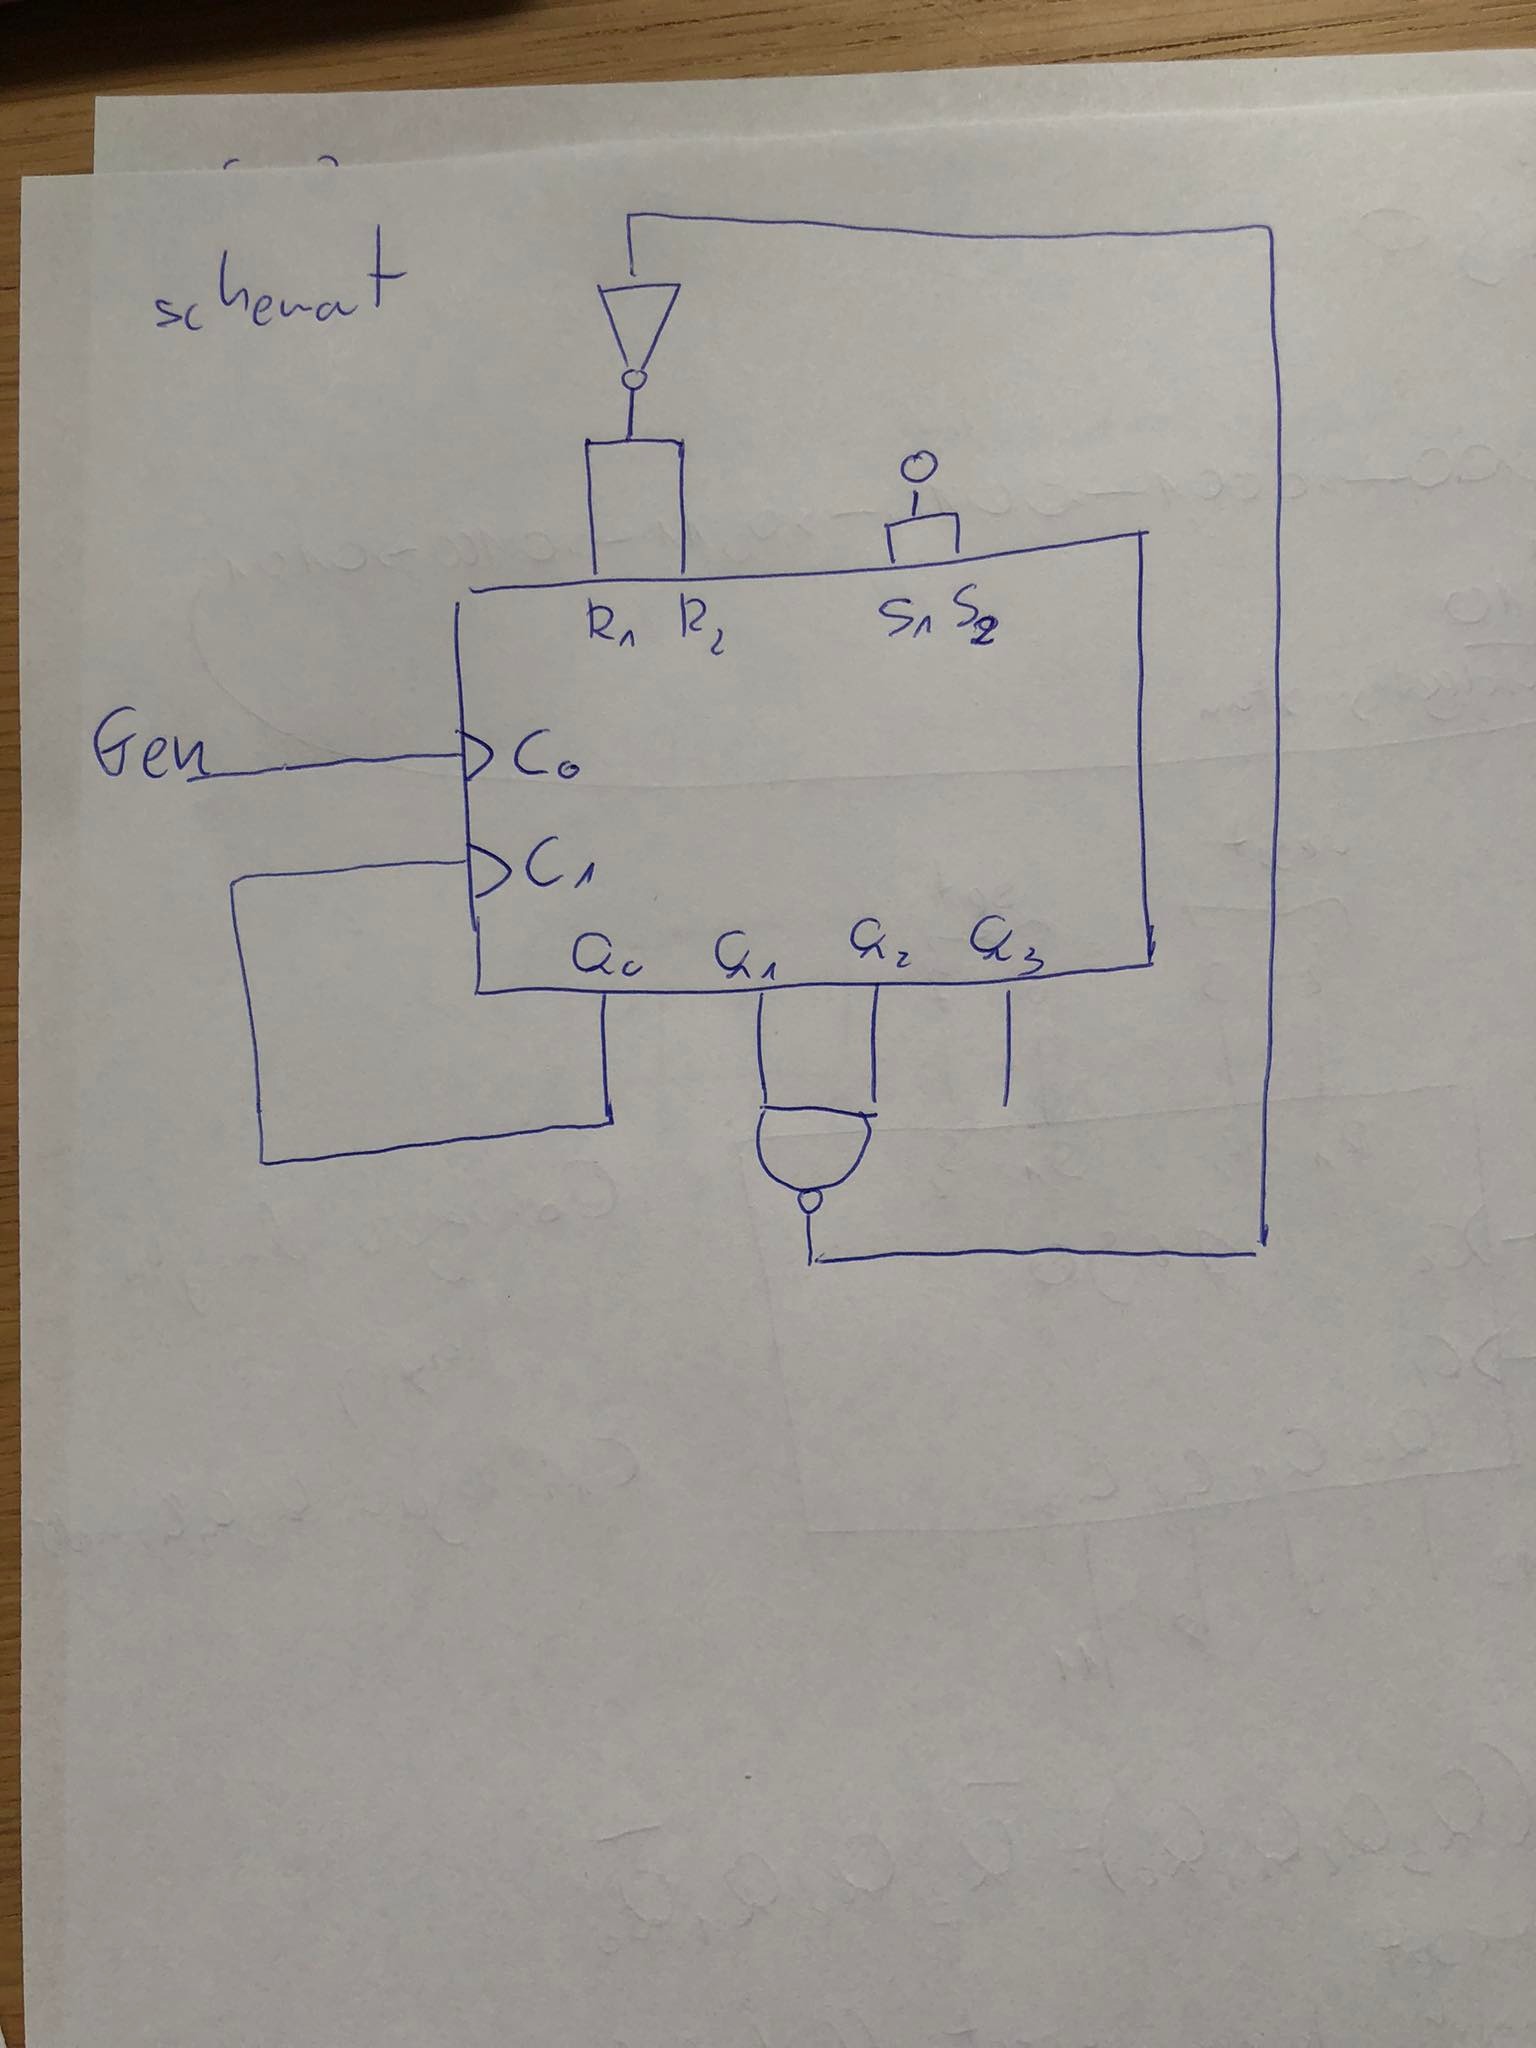 schemat
0
R₁ R₂ S₁ S₂
Gen C₀
C₁
Q₀ Q₁ Q₂ Q₃